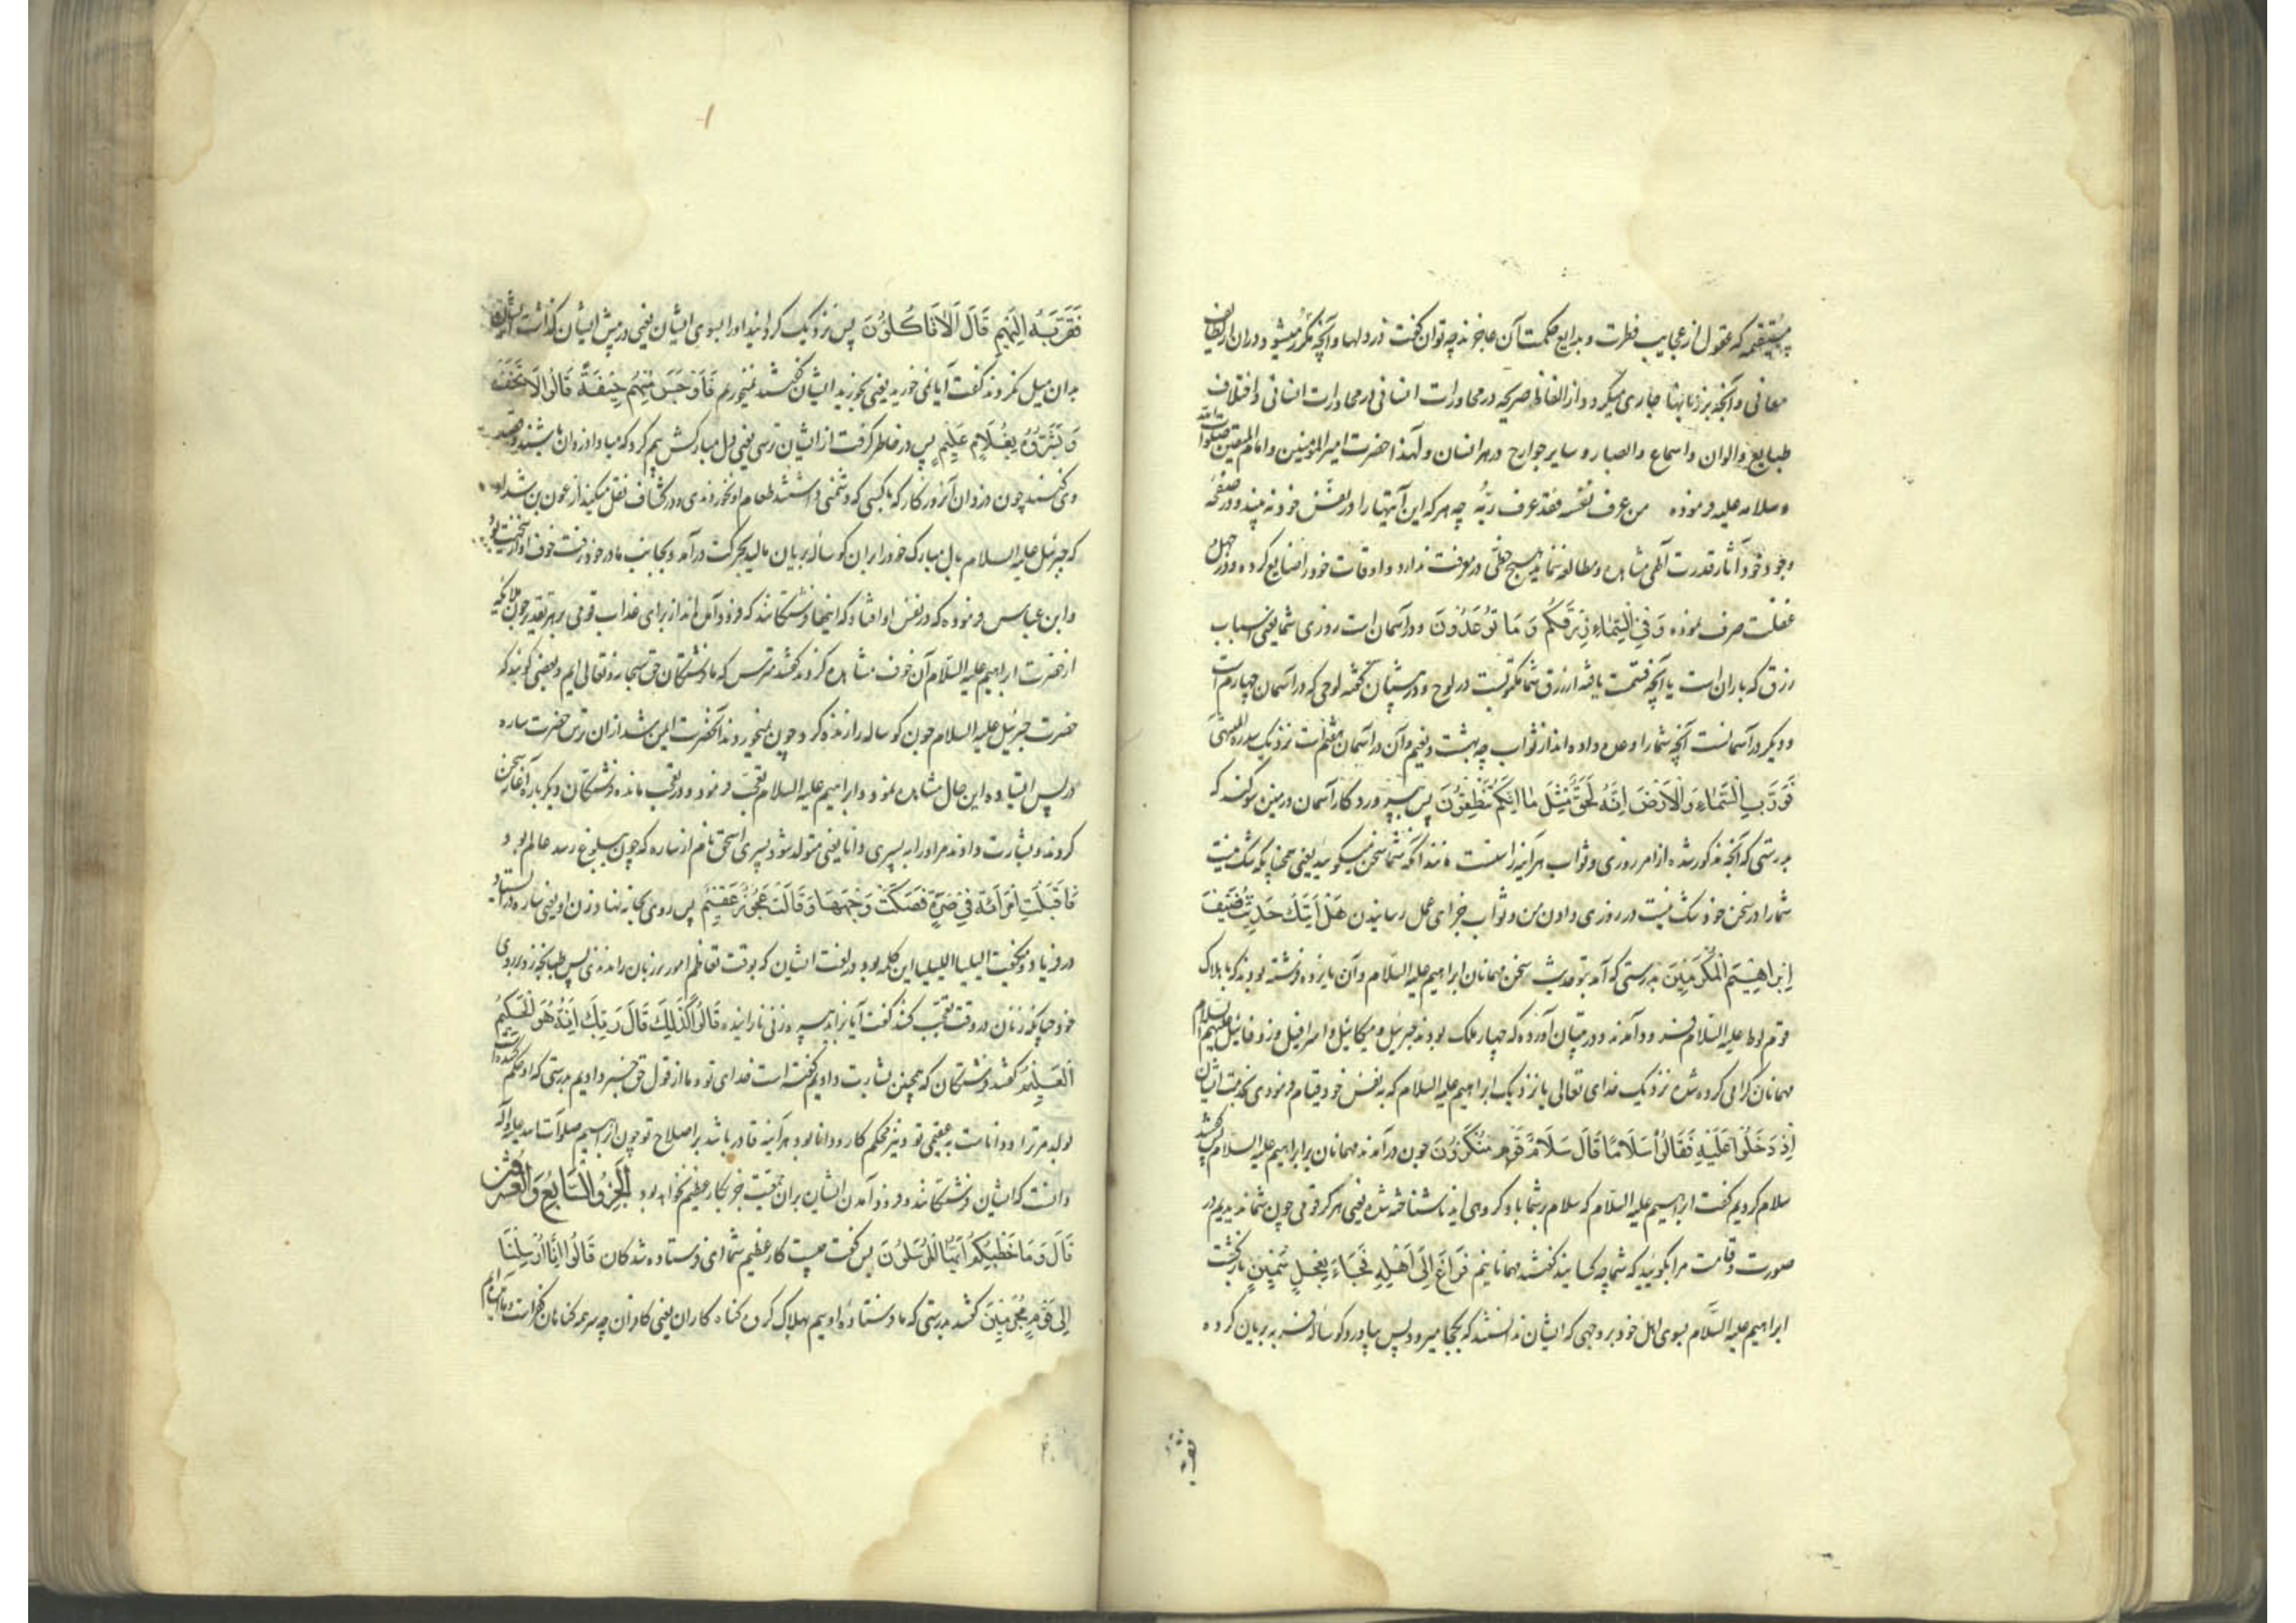 مستقیمه که عقول از عجایب فطرت و بدایع حکمت آن عاجزند چه توان گفت در دلها و آنچه مکرر میشود در آن از لطایف
معانی و آنچه بر زبانها جاری میگردد از الفاظ صریحه در محاورات انسانی در محاورات انسانی و اختلاف
طبایع و الوان و اسماع و ابصار و سایر جوارح در هر انسان و لهذا حضرت امیر المؤمنین و امام المتقین صلوات الله
و سلامه علیه فرموده من عرف نفسه فقد عرف ربّه چه هر که این آیتها را در نفس خود نه بیند و در صفحه
وجود خود آثار قدرت الهی مشاهده و مطالعه ننماید هیچ حظّی در معرفت ندارد و اوقات خود را ضایع کرده و در جهل
غفلت صرف نموده وَفِي السَّمَاءِ رِزْقُكُمْ وَمَا تُوعَدُونَ و در آسمان است روزی شما یعنی اسباب
رزق که باران است یا آنچه قسمت یافته از رزق شما مکتوبست در لوح و در تبیان گفته لوحی که در آسمان چهارم است
و دیگر در آسمانست آنچه شما را وعده داده اند از ثواب چه بهشت و نعیم و آن در آسمان هفتم است نزدیک سدرة المنتهی
فَوَرَبِّ السَّمَاءِ وَالْأَرْضِ إِنَّهُ لَحَقٌّ مِثْلَ مَا أَنَّكُمْ تَنْطِقُونَ پس به پروردگار آسمان و زمین سوگند که
بدرستی که آنچه مذکور شد از امر روزی و ثواب هر آینه راستست مانند آنکه شما سخن میگویید یعنی همچنانکه شک نیست
شما را در سخن خود شک نیست در روزی دادن من و ثواب جزای عمل رسانیدن هَلْ أَتَيكَ حَدِيثُ ضَيْفِ
إِبْرَاهِيمَ الْمُكْرَمِينَ بدرستی که آمد بتو حدیث سخن مهمانان ابراهیم علیه السّلام و آن یازده فرشته بودند که با هلاک
قوم لوط علیه السّلام فرود آمدند و در تبیان آورده که چهار ملک بودند جبرئیل و میکائیل و اسرافیل و زوفائیل علیهم السلام
مهمانان گرامی کرده شده نزدیک خدای تعالی یا نزدیک ابراهیم علیه السلام که به نفس خود قیام فرمودی بخدمت ایشان
إِذْ دَخَلُوا عَلَيْهِ فَقَالُوا سَلَامًا قَالَ سَلَامٌ قَوْمٌ مُنْكَرُونَ چون درآمدند مهمانان بر ابراهیم علیه السلام پس گفتند
سلام کردیم گفت ابراهیم علیه السّلام که سلام بر شما باد گروهی اید ناشناخته شده یعنی هرگز قومی چون شما ندیدم در
صورت و قامت مرا بگویید که شما چه کسانید گفتند مهمانانیم فَرَاغَ إِلَى أَهْلِهِ فَجَاءَ بِعِجْلٍ سَمِينٍ بازگشت
ابراهیم علیه السّلام بسوی اهل خود بر وجهی که ایشان ندانستند که بکجا میرود پس بیاورد گوساله فربه بریان کرده
فَقَرَّبَهُ إِلَيْهِمْ قَالَ أَلَا تَأْكُلُونَ پس نزدیک گردانید او را بسوی ایشان یعنی در پیش ایشان گذاشت ایشان
بدان میل نکردند گفت آیا نمی خورید یعنی بخورید ایشان گفتند نمیخوریم فَأَوْجَسَ مِنْهُمْ خِيفَةً قَالُوا لَا تَخَفْ
وَبَشَّرُوهُ بِغُلَامٍ عَلِيمٍ پس در خاطر گرفت از ایشان ترسی یعنی دل مبارکش بیم کرد که مبادا دزدان باشند و قصد
وی کنند چون دزدان آن روزگار که با کسی که دشمنی داشتند طعام او نخوردندی و در کشاف نقل میکند از عون بن شداد
که جبرئیل علیه السلام بال مبارک خود را بر آن گوساله بریان مالید بحرکت درآمد و بجانب مادر خود رفت خوف او
و ابن عباس فرموده که در نفس او افتاد که اینها فرشتگانند که فرود آمده اند از برای عذاب قومی بر هر تقدیر چون ملائکه
از حضرت ابراهیم علیه السّلام آن خوف مشاهده کردند گفتند مترس که ما فرشتگان حق سبحانه و تعالی ایم و بعضی گویند که
حضرت جبرئیل علیه السلام چون گوساله را زنده کرد و چون نمیخوردند آنحضرت ایمن شد از ان ترس حضرت ساره
در پس ایستاده این حال مشاهده نمود و ابراهیم علیه السلام تعجب فرمود و در تعجب مانده فرشتگان دیگر باره آغاز سخن
کردند و بشارت دادند مر او را به پسری دانا یعنی متولد شود پسری اسحق نام از ساره که چون ببلوغ رسد عالم بود و
فَأَقْبَلَتِ امْرَأَتُهُ فِي صَرَّةٍ فَصَكَّتْ وَجْهَهَا وَقَالَتْ عَجُوزٌ عَقِيمٌ پس روی بخانه نهاد زن او یعنی ساره در
در فریاد و میگفت اللیلیا اللیلیا این کلمه بود در لغت ایشان که بوقت تعاظم امور بر زبان راندندی پس طپانچه زد بر روی
خود چنانکه زنان در وقت تعجب کنند گفت آیا زاید پیره زنی نازاینده قَالُوا كَذَلِكَ قَالَ رَبُّكِ إِنَّهُ هُوَ الْحَكِيمُ
الْعَلِيمُ گفتند فرشتگان که همچنین بشارت دادیم گفته است خدای تو و ما از قول حق خبر دادیم بدرستی که او حکم کننده است
بولد مر ترا و دانا است به عقیمی تو و نیز محکم کار و دانا بود هر آینه قادر باشد بر اصلاح تو چون ابراهیم صلوات الله علیه و آله
دانست که ایشان فرشتگانند و فرود آمدن ایشان بر آن حقیقت جز بکار عظیم نخواهد بود الجزو السابع والعشرون
قَالَ فَمَا خَطْبُكُمْ أَيُّهَا الْمُرْسَلُونَ پس گفت چیست کار عظیم شما ای فرستاده شدگان قَالُوا إِنَّا أُرْسِلْنَا
إِلَى قَوْمٍ مُجْرِمِينَ گفتند بدرستی که ما فرستاده اویم بهلاک کردن گناه کاران یعنی کافران چه سر همه گناهان کفر است